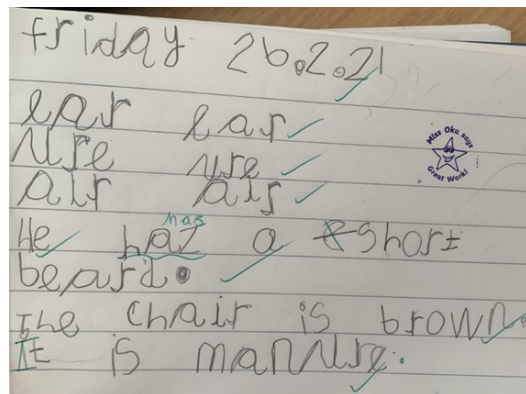 friday 26.2.21
ear ear
ure ure
air air
Miss Oku says
Great Work!
has
He haz a short
beard.
the chair is brown.
It is manure.